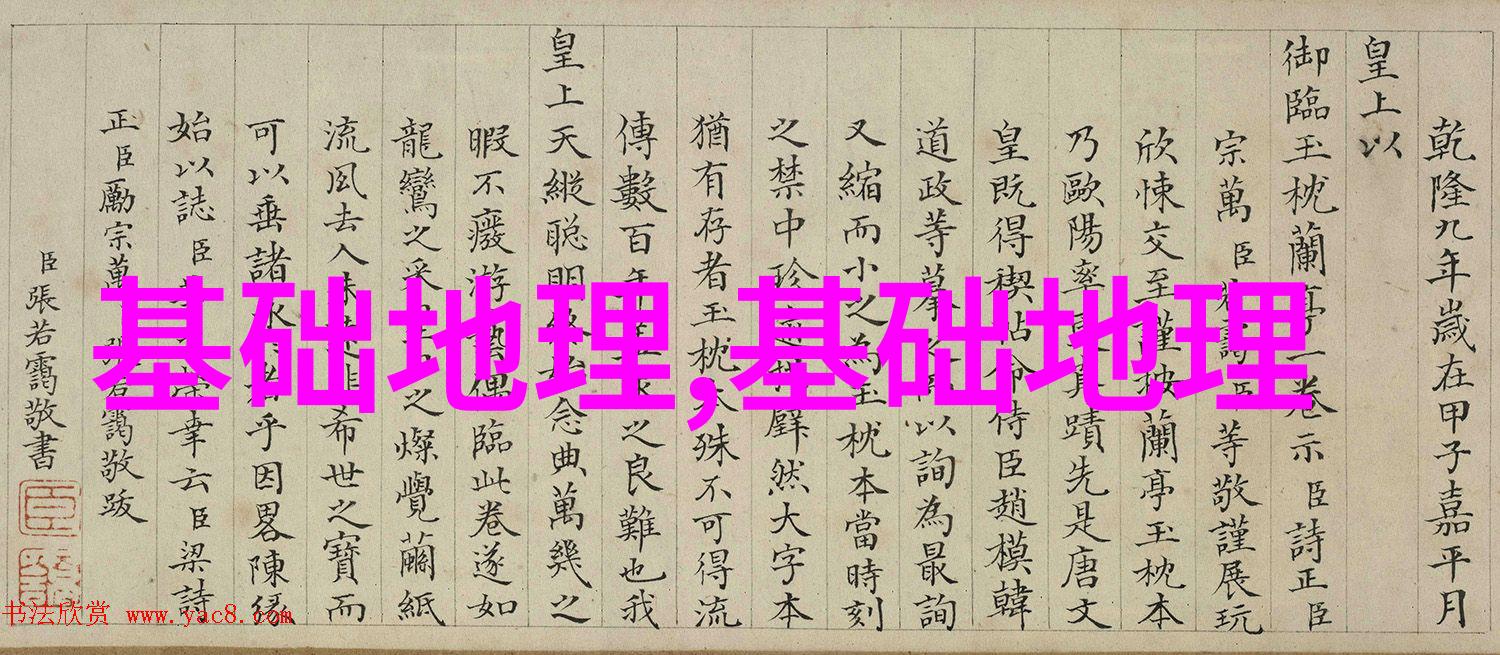 乾隆九年歲在甲子嘉平月
皇上以
御臨玉枕蘭亭一卷示臣詩正臣
宗萬臣若靄臣等敬謹展玩
欣悚交至謹按蘭亭玉枕本
乃歐陽率更真蹟先是唐文
皇既得禊帖命侍臣趙模韓
道政等摹 以詢為最詢
又縮而小之為玉枕本當時刻
之禁中珍 然大字本
猶有存者玉枕本殊不可得流
傳數百年 之良難也我
皇上天縱聰明 念典萬幾之
暇不癈游藝偶臨此卷遂如
龍鸞之采 之燦覺繭紙
流風去人 希世之寶而
可以垂諸永 者乎因畧陳緣
始以誌臣 榮幸云臣梁詩
正臣勵宗萬臣張若靄敬跋
臣張若靄敬書
基础地理,基础地理
书法欣赏 www.yac8.com